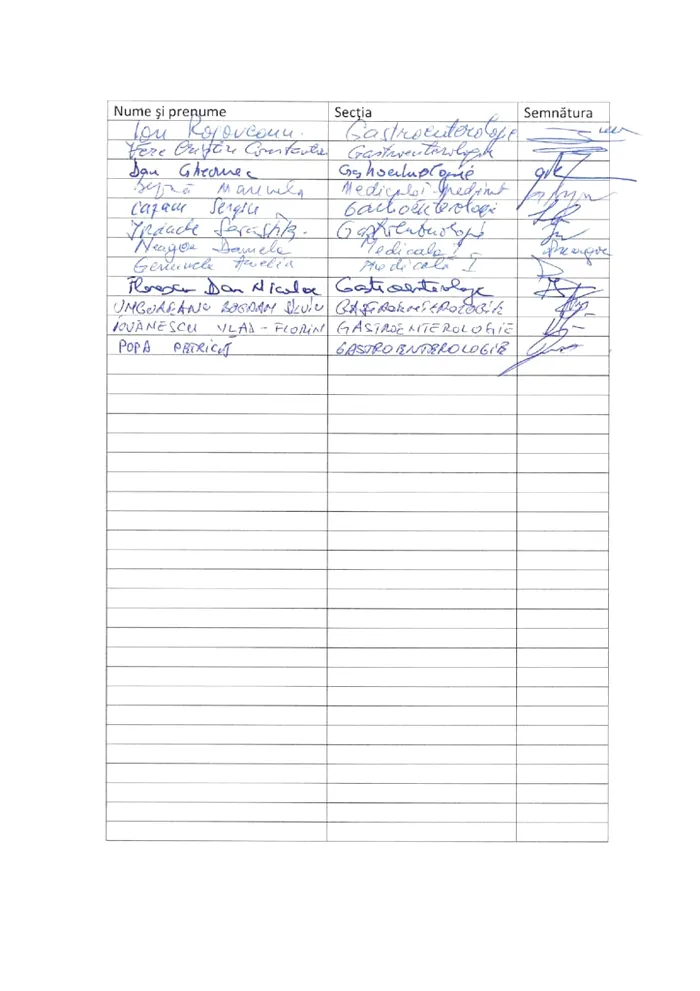 Nume și prenume Secția Semnătura
Ion Rogoveanu Gastroenterologie
Vere Cristin Constantin Gastroenterologie
Dan Gheonea Gastroenterologie
Manuela Medicală
Cazacu Sergiu Gastroenterologie
Sevastița Gastroenterologie
Neagoe Daniela Medicală I
Genunche Amelia Medicală I
Florescu Dan Nicolae Gastroenterologie
UNGUREANU BOGDAN SILVIU GASTROENTEROLOGIE
IOVĂNESCU VLAD-FLORIN GASTROENTEROLOGIE
POPA PETRICĂ GASTROENTEROLOGIE